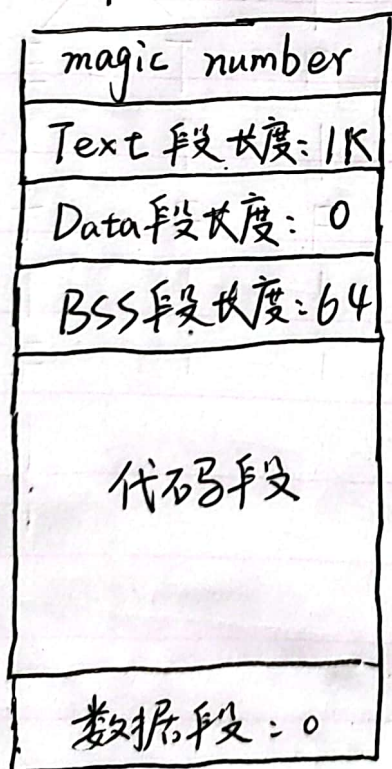 magic number
Text 段长度：1K
Data段长度：0
BSS段长度：64
代码段
数据段：0